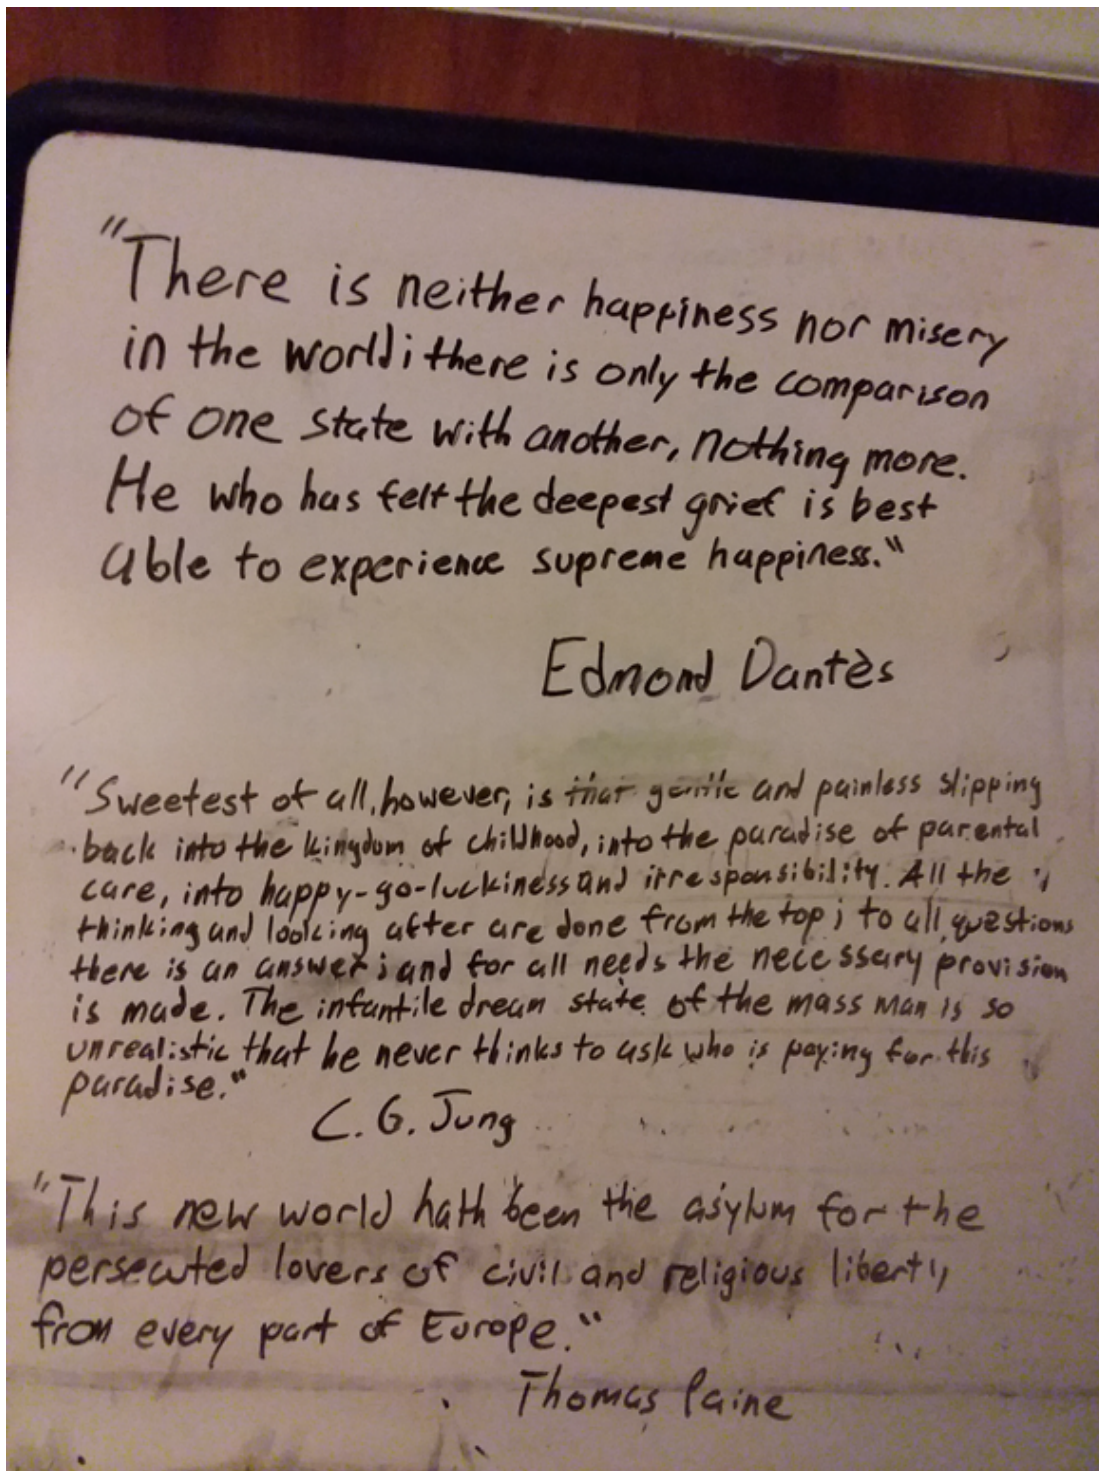 "There is neither happiness nor misery
in the world; there is only the comparison
of one state with another, nothing more.
He who has felt the deepest grief is best
able to experience supreme happiness."
Edmond Dantès
"Sweetest of all, however, is that gentle and painless slipping
back into the kingdom of childhood, into the paradise of parental
care, into happy-go-luckiness and irresponsibility. All the
thinking and looking after are done from the top; to all questions
there is an answer; and for all needs the necessary provision
is made. The infantile dream state of the mass man is so
unrealistic that he never thinks to ask who is paying for this
paradise."
C. G. Jung
"This new world hath been the asylum for the
persecuted lovers of civil and religious liberty
from every part of Europe."
Thomas Paine